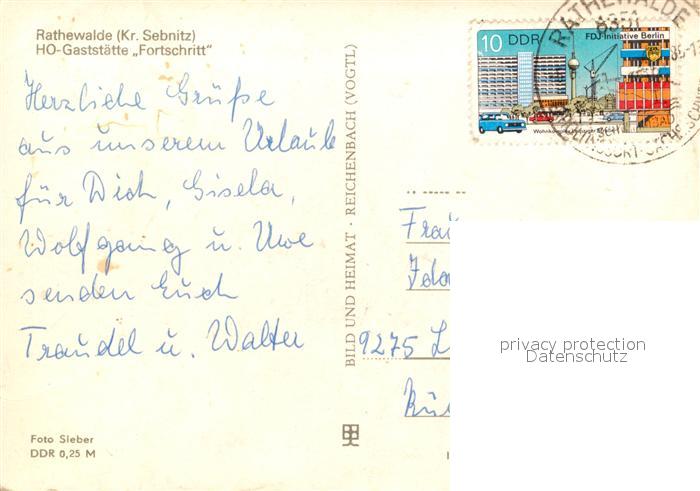 Rathewalde (Kr. Sebnitz)
HO-Gaststätte „Fortschritt"
Herzliche Grüße
aus unserem Urlaub
für Dich, Gisela,
Wolfgang u. Uwe
senden Euch
Traudel u. Walter
Foto Sieber
DDR 0,25 M
BILD UND HEIMAT · REICHENBACH (VOGTL)
RATHEWALDE
8351
10 DDR
FDJ-Initiative Berlin
9275
privacy protection
Datenschutz